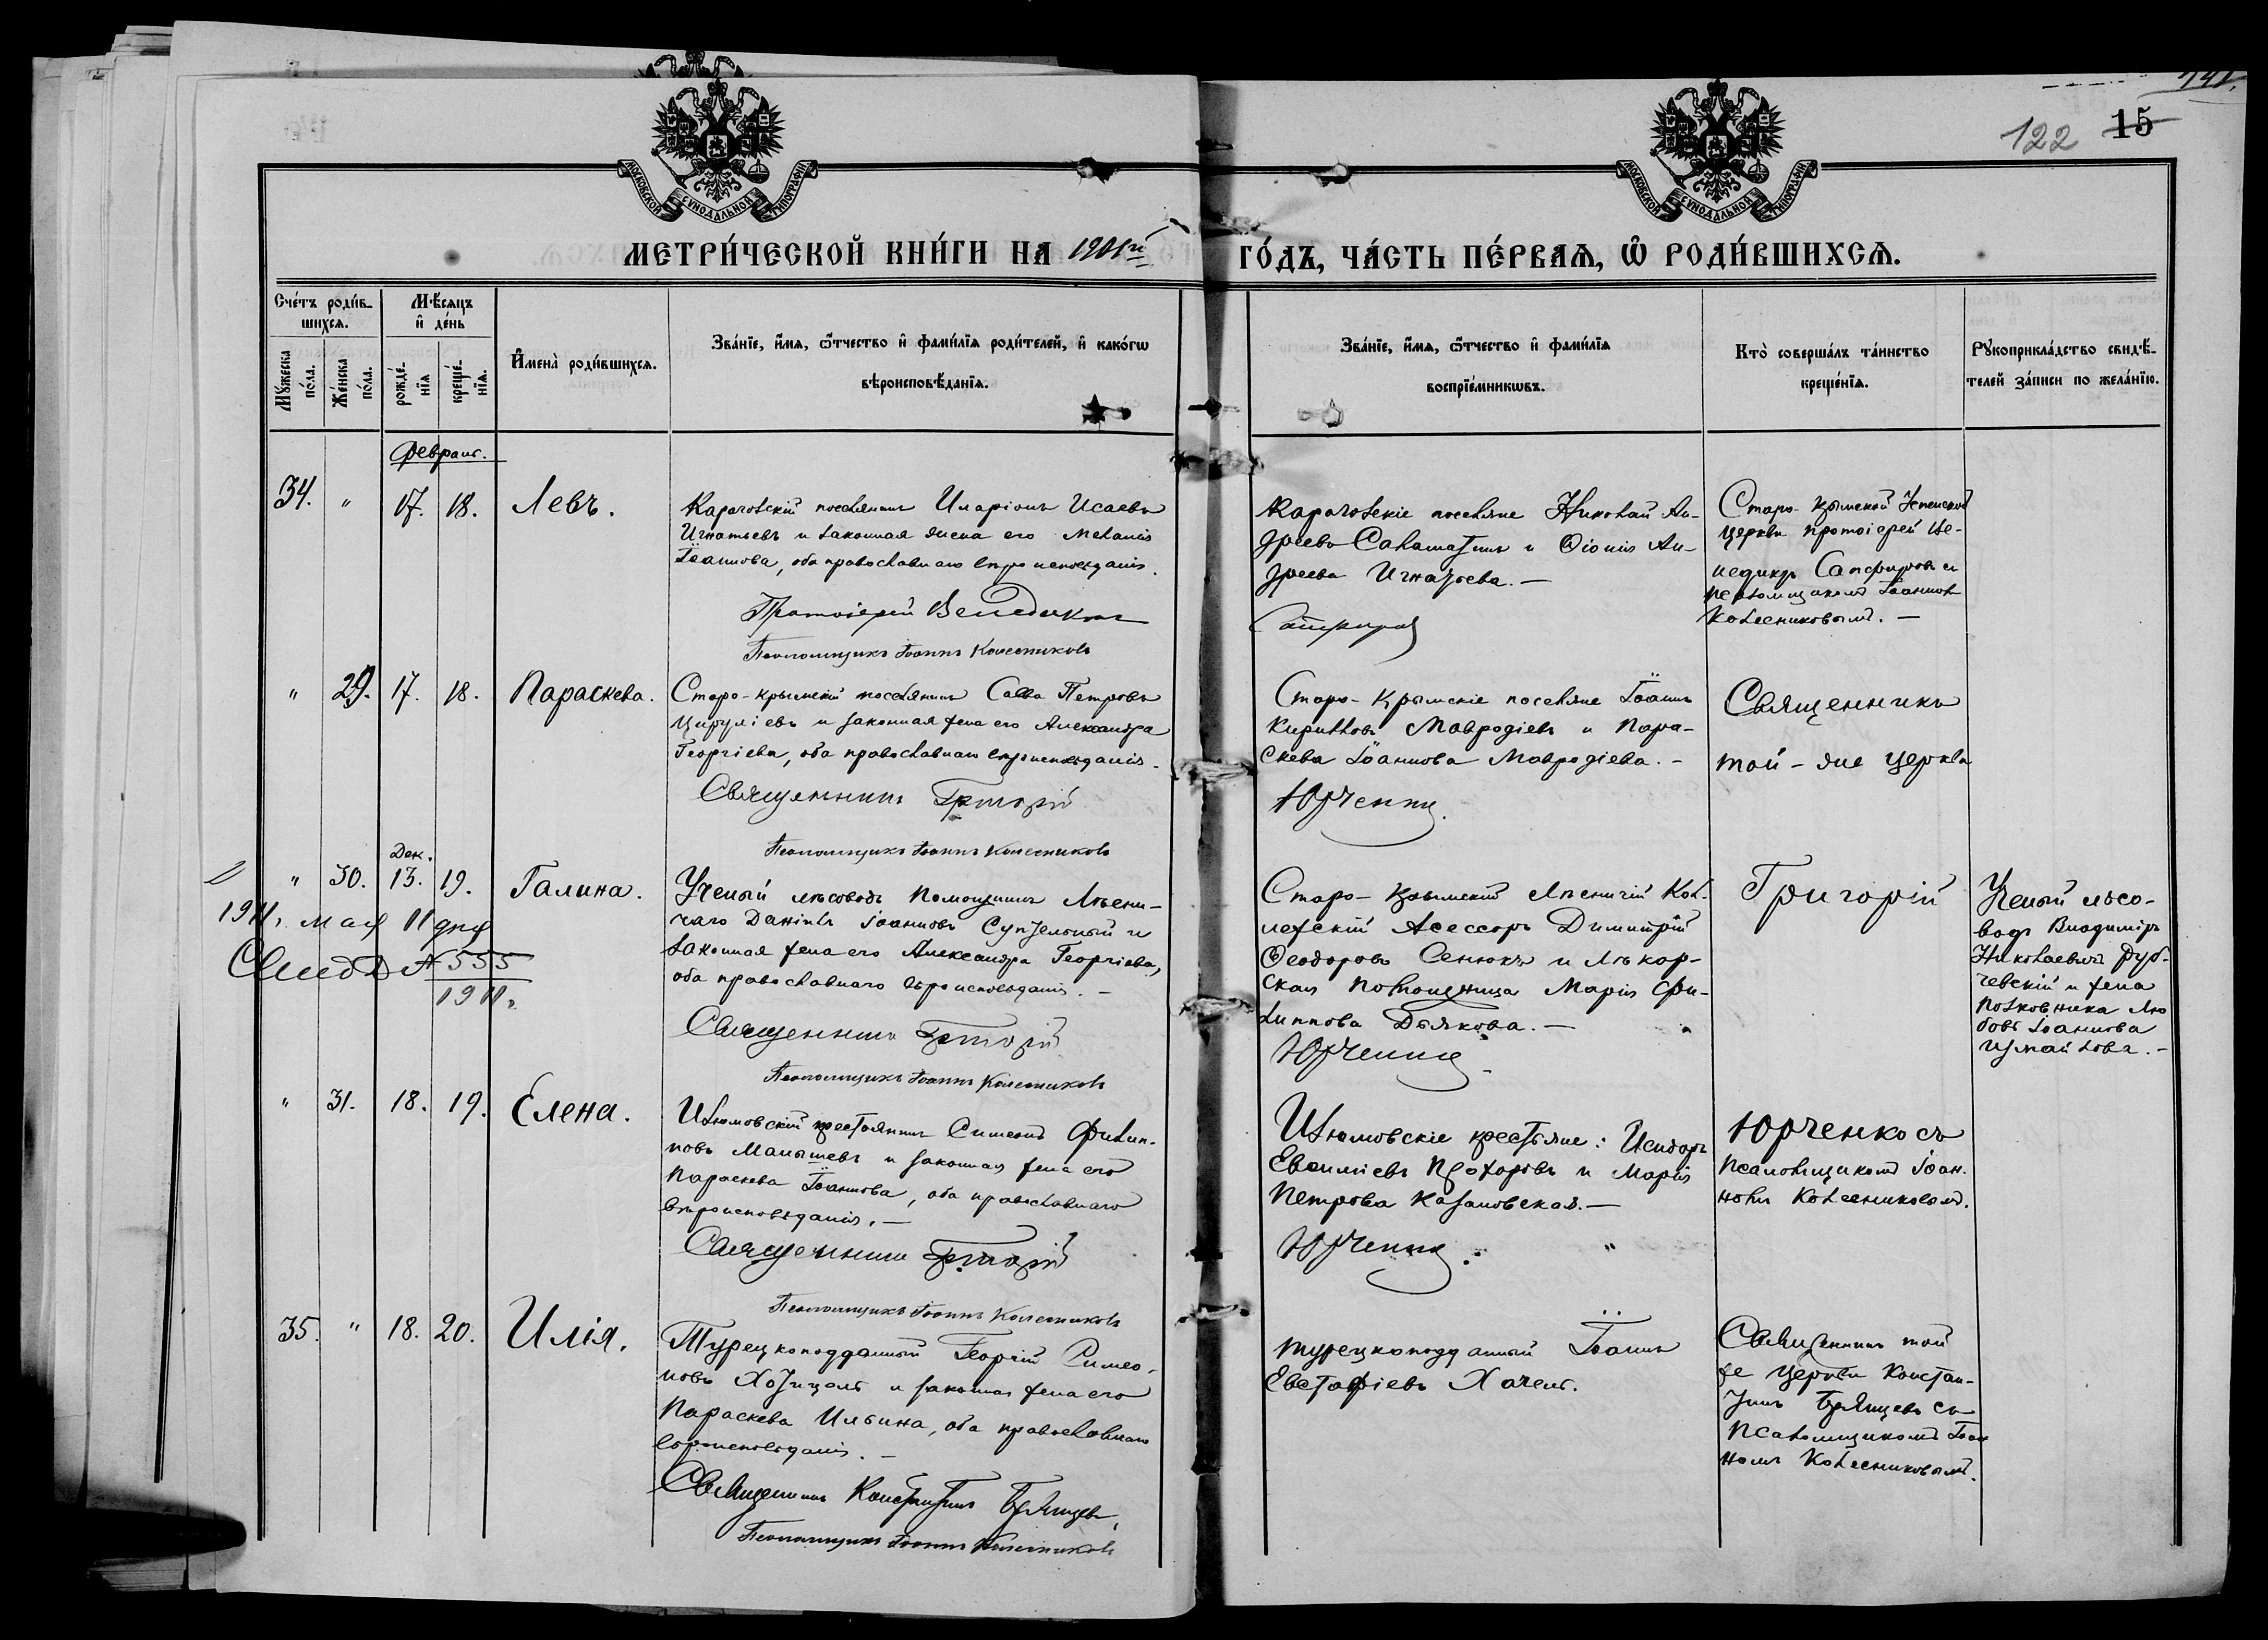 122 15
МОСКОВСКОЙ СѴНОДАЛЬНОЙ ТИПОГРАФІИ
МОСКОВСКОЙ СѴНОДАЛЬНОЙ ТИПОГРАФІИ
МЕТРИ́ЧЕСКОЙ КНИ́ГИ НА 1901й ГО́ДЪ, ЧА́СТЬ ПЕ́РВАѦ, Ѽ РОДИ́ВШИХСѦ.
Счéтъ роди́в-
шихсѧ.
Мꙋ́жеска по́ла.
Же́нска по́ла.
Мѣ́сяцъ
и҆ де́нь
рожде́-
нїѧ
креще́-
нїѧ.
И҆мена̀ роди́вшихсѧ.
Зва́нїе, и҆́мѧ, ѻ҆́тчество и҆ фами́лїѧ роди́телей, и҆ како́гѡ
вѣроисповѣ́данїѧ.
Зва́нїе, и҆́мѧ, ѻ҆́тчество и҆ фами́лїѧ
воспрїе́мникѡвъ.
Кто̀ соверша́лъ та́инство
креще́нїѧ.
Рꙋкоприкла́дство свидѣ́-
телей за́писи по жела́нїю.
Февраль.
34. " 17. 18. Левъ.
Карагозскій поселянинъ Иларіонъ Исаевъ
Игнатьевъ и законная жена его Меланія
Іоаннова, оба православнаго вѣроисповѣданія.
Протоіерей Венедиктъ
Псаломщикъ Іоаннъ Колесниковъ
Карагозскіе поселяне Николай Ан-
дреевъ Саламатинъ и Ѳіонія Ан-
дреева Игнатьева. —
Сапфировъ
Старо-Крымской Успенской
церкви протоіерей Ве-
недиктъ Сапфировъ съ
псаломщикомъ Іоанномъ
Колесниковымъ. —
" 29. 17. 18. Параскева.
Старо-Крымскій поселянинъ Савва Петровъ
Цируліевъ и законная жена его Александра
Георгіева, оба православнаго вѣроисповѣданія.
Священникъ Григорій
Псаломщикъ Іоаннъ Колесниковъ
Старо-Крымскіе поселяне Іоаннъ
Кирилловъ Мавродіевъ и Пара-
скева Іоаннова Мавродіева. —
Юрченко
Священникъ
той-же церкви
Дек.
" 30. 13. 19. Галина.
1911 г. мая 11 дня
Свид. № 555
1911 г.
Ученый лѣсоводъ Помощникъ Лѣсни-
чаго Даніилъ Іоанновъ Супдельный и
законная жена его Александра Георгіева,
оба православнаго вѣроисповѣданія. —
Священникъ Григорій
Псаломщикъ Іоаннъ Колесниковъ
Старо-Крымскій Лѣсничій Кол-
лежскій Асессоръ Димитрій
Ѳеодоровъ Сенюкъ и Лѣкар-
ская Помощница Марія Фи-
липпова Дьякова. —
Юрченко
Григорій
Ученый лѣсо-
водъ Владиміръ
Николаевичъ Руб-
чевскій и жена
Полковника Лю
бовь Іоаннова
Измайлова. —
" 31. 18. 19. Елена.
Изюмовскій крестьянинъ Симеонъ Филип-
повъ Манышевъ и законная жена его
Параскева Іоаннова, оба православнаго
вѣроисповѣданія. —
Священникъ Григорій
Псаломщикъ Іоаннъ Колесниковъ
Изюмовскіе крестьяне: Исидоръ
Евѳиміевъ Прохоровъ и Марія
Петрова Казановская. —
Юрченко. "
Юрченко съ
псаломщикомъ Іоан-
номъ Колесниковымъ.
35. " 18. 20. Илія.
Турецкоподданный Георгій Симео-
новъ и законная жена его
Параскева Ильина, оба православнаго
вѣроисповѣданія. —
Священникъ Константинъ Брянцевъ
Псаломщикъ Іоаннъ Колесниковъ
турецкоподданный Іоаннъ
Евстафіевъ
Священникъ той
же церкви Констан-
тинъ Брянцевъ съ
псаломщикомъ Іоан
номъ Колесниковымъ.